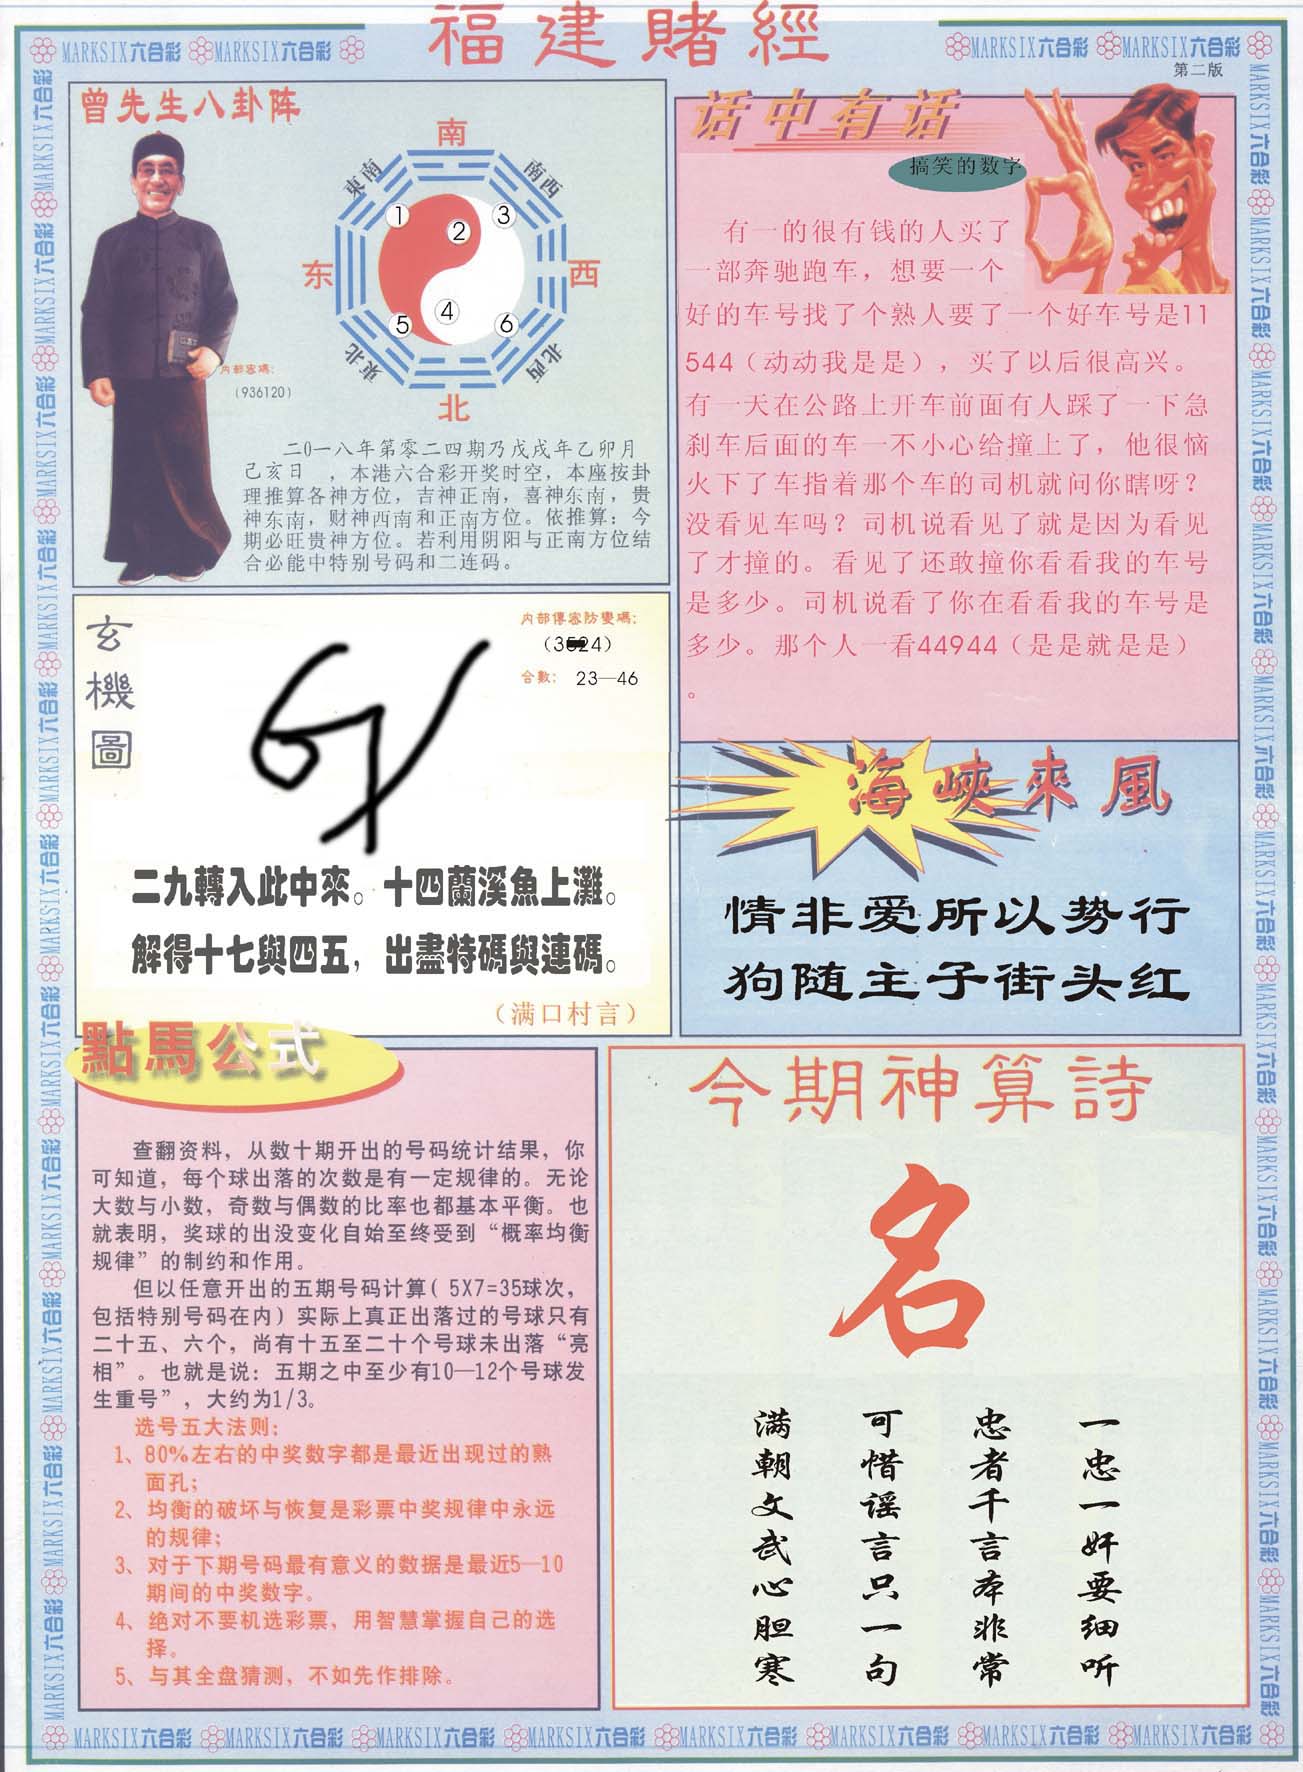 福建賭經
MARKSIX六合彩 MARKSIX六合彩
MARKSIX六合彩 MARKSIX六合彩
第二版
曾先生八卦阵
南
東南
南西
东
西
1
2
3
4
5
6
東北
北西
北
内部密碼：
（936120）
二0一八年第零二四期乃戊戌年乙卯月
己亥日 ，本港六合彩开奖时空，本座按卦
理推算各神方位，吉神正南，喜神东南，贵
神东南，财神西南和正南方位。依推算：今
期必旺贵神方位。若利用阴阳与正南方位结
合必能中特别号码和二连码。
话中有话
搞笑的数字
有一的很有钱的人买了
一部奔驰跑车，想要一个
好的车号找了个熟人要了一个好车号是11
544（动动我是是），买了以后很高兴。
有一天在公路上开车前面有人踩了一下急
刹车后面的车一不小心给撞上了，他很恼
火下了车指着那个车的司机就问你瞎呀？
没看见车吗？司机说看见了就是因为看见
了才撞的。看见了还敢撞你看看我的车号
是多少。司机说看了你在看看我的车号是
多少。那个人一看44944（是是就是是）
。
玄機圖
内部傳密防變碼：
（3524）
合數： 23—46
二九轉入此中來。十四蘭溪魚上灘。
解得十七與四五，出盡特碼與連碼。
（满口村言）
海峽來風
情非爱所以势行
狗随主子街头红
點馬公式
查翻资料，从数十期开出的号码统计结果，你
可知道，每个球出落的次数是有一定规律的。无论
大数与小数，奇数与偶数的比率也都基本平衡。也
就表明，奖球的出没变化自始至终受到“概率均衡
规律”的制约和作用。
但以任意开出的五期号码计算( 5X7=35球次，
包括特别号码在内）实际上真正出落过的号球只有
二十五、六个，尚有十五至二十个号球未出落“亮
相”。也就是说：五期之中至少有10—12个号球发
生重号”，大约为1/3。
选号五大法则：
1、80%左右的中奖数字都是最近出现过的熟
面孔；
2、均衡的破坏与恢复是彩票中奖规律中永远
的规律；
3、对于下期号码最有意义的数据是最近5—10
期间的中奖数字。
4、绝对不要机选彩票，用智慧掌握自己的选
择。
5、与其全盘猜测，不如先作排除。
今期神算詩
名
一忠一奸要细听
忠者千言本非常
可惜谣言只一句
满朝文武心胆寒
MARKSIX六合彩 MARKSIX六合彩 MARKSIX六合彩 MARKSIX六合彩 MARKSIX六合彩 MARKSIX六合彩 MARKSIX六合彩 MARKSIX六合彩